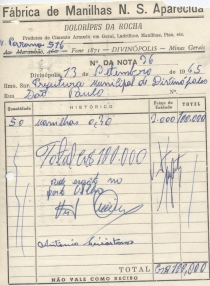 Fábrica de Manilhas N. S. Aparecida
DOLORÍPES DA ROCHA
Produtos de Cimento Armado em Geral, Ladrilhos, Manilhas, Pias, etc.
Fone 1871 — DIVINÓPOLIS — Minas Gerais
Nº DA NOTA 26
Divinópolis, 13 de Setembro de 1965
Ilmo. Sr. Prefeitura Municipal de Divinópolis
Rua São Paulo Nº
Quantidade HISTÓRICO Preço da Unidade TOTAL
50 manilhas 0,30 2.000 100.000
Total Cr$ 100.000
Antonio
TOTAL Cr$ 100,000
NÃO VALE COMO RECIBO